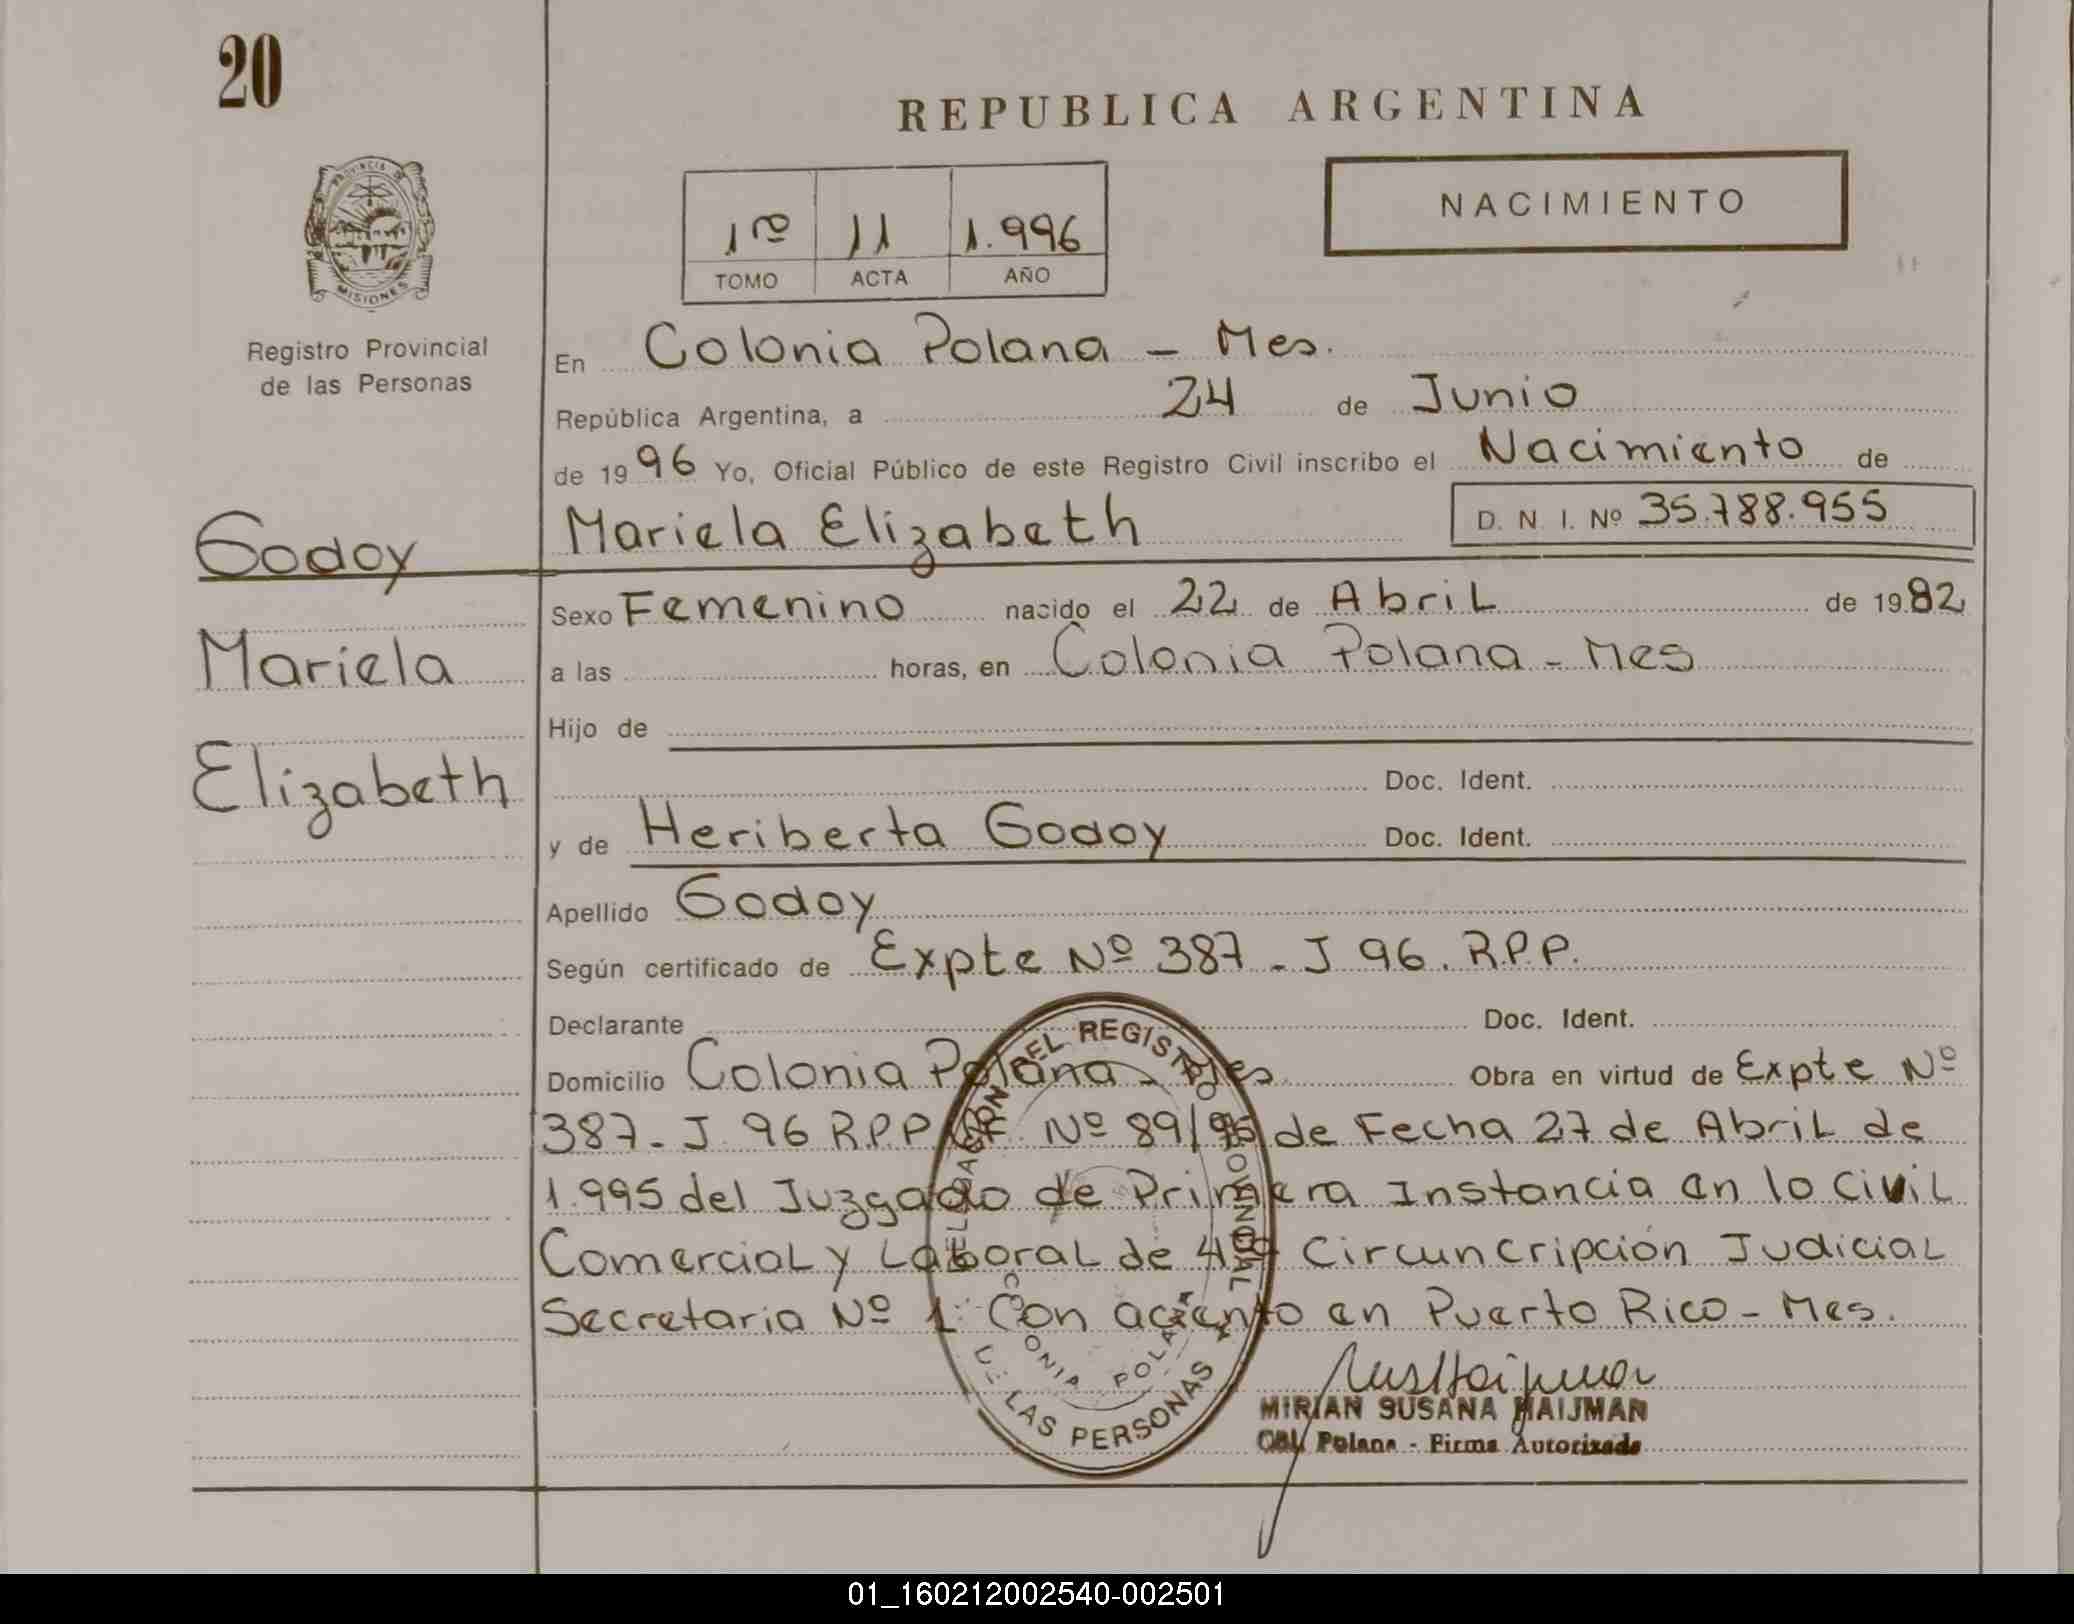 20
REPUBLICA ARGENTINA
PROVINCIA DE
MISIONES
Registro Provincial
de las Personas
1ro 11 1.996
TOMO ACTA AÑO
NACIMIENTO
En Colonia Polana - Mes.
República Argentina, a 24 de Junio
de 1996 Yo, Oficial Público de este Registro Civil inscribo el Nacimiento de
Mariela Elizabeth D. N. I. Nº 35.788.955
Godoy
Mariela
Elizabeth
Sexo Femenino nacido el 22 de Abril de 1982
a las horas, en Colonia Polana - Mes
Hijo de
Doc. Ident.
y de Heriberta Godoy Doc. Ident.
Apellido Godoy
Según certificado de Expte Nº 387 - J 96. R.P.P.
Declarante Doc. Ident.
Domicilio Colonia Polana - Mes Obra en virtud de Expte Nº
387 - J 96 R.P.P. Nº 89/95 de Fecha 27 de Abril de
1.995 del Juzgado de Primera Instancia en lo Civil
Comercial y Laboral de 4ta Circuncripción Judicial
Secretaria Nº 1 Con aciento en Puerto Rico - Mes.
DELEGACION DEL REGISTRO PROVINCIAL
DE LAS PERSONAS
COLONIA POLANA
MIRIAN SUSANA HAIJMAN
Col. Polana - Firma Autorizada
01_160212002540-002501